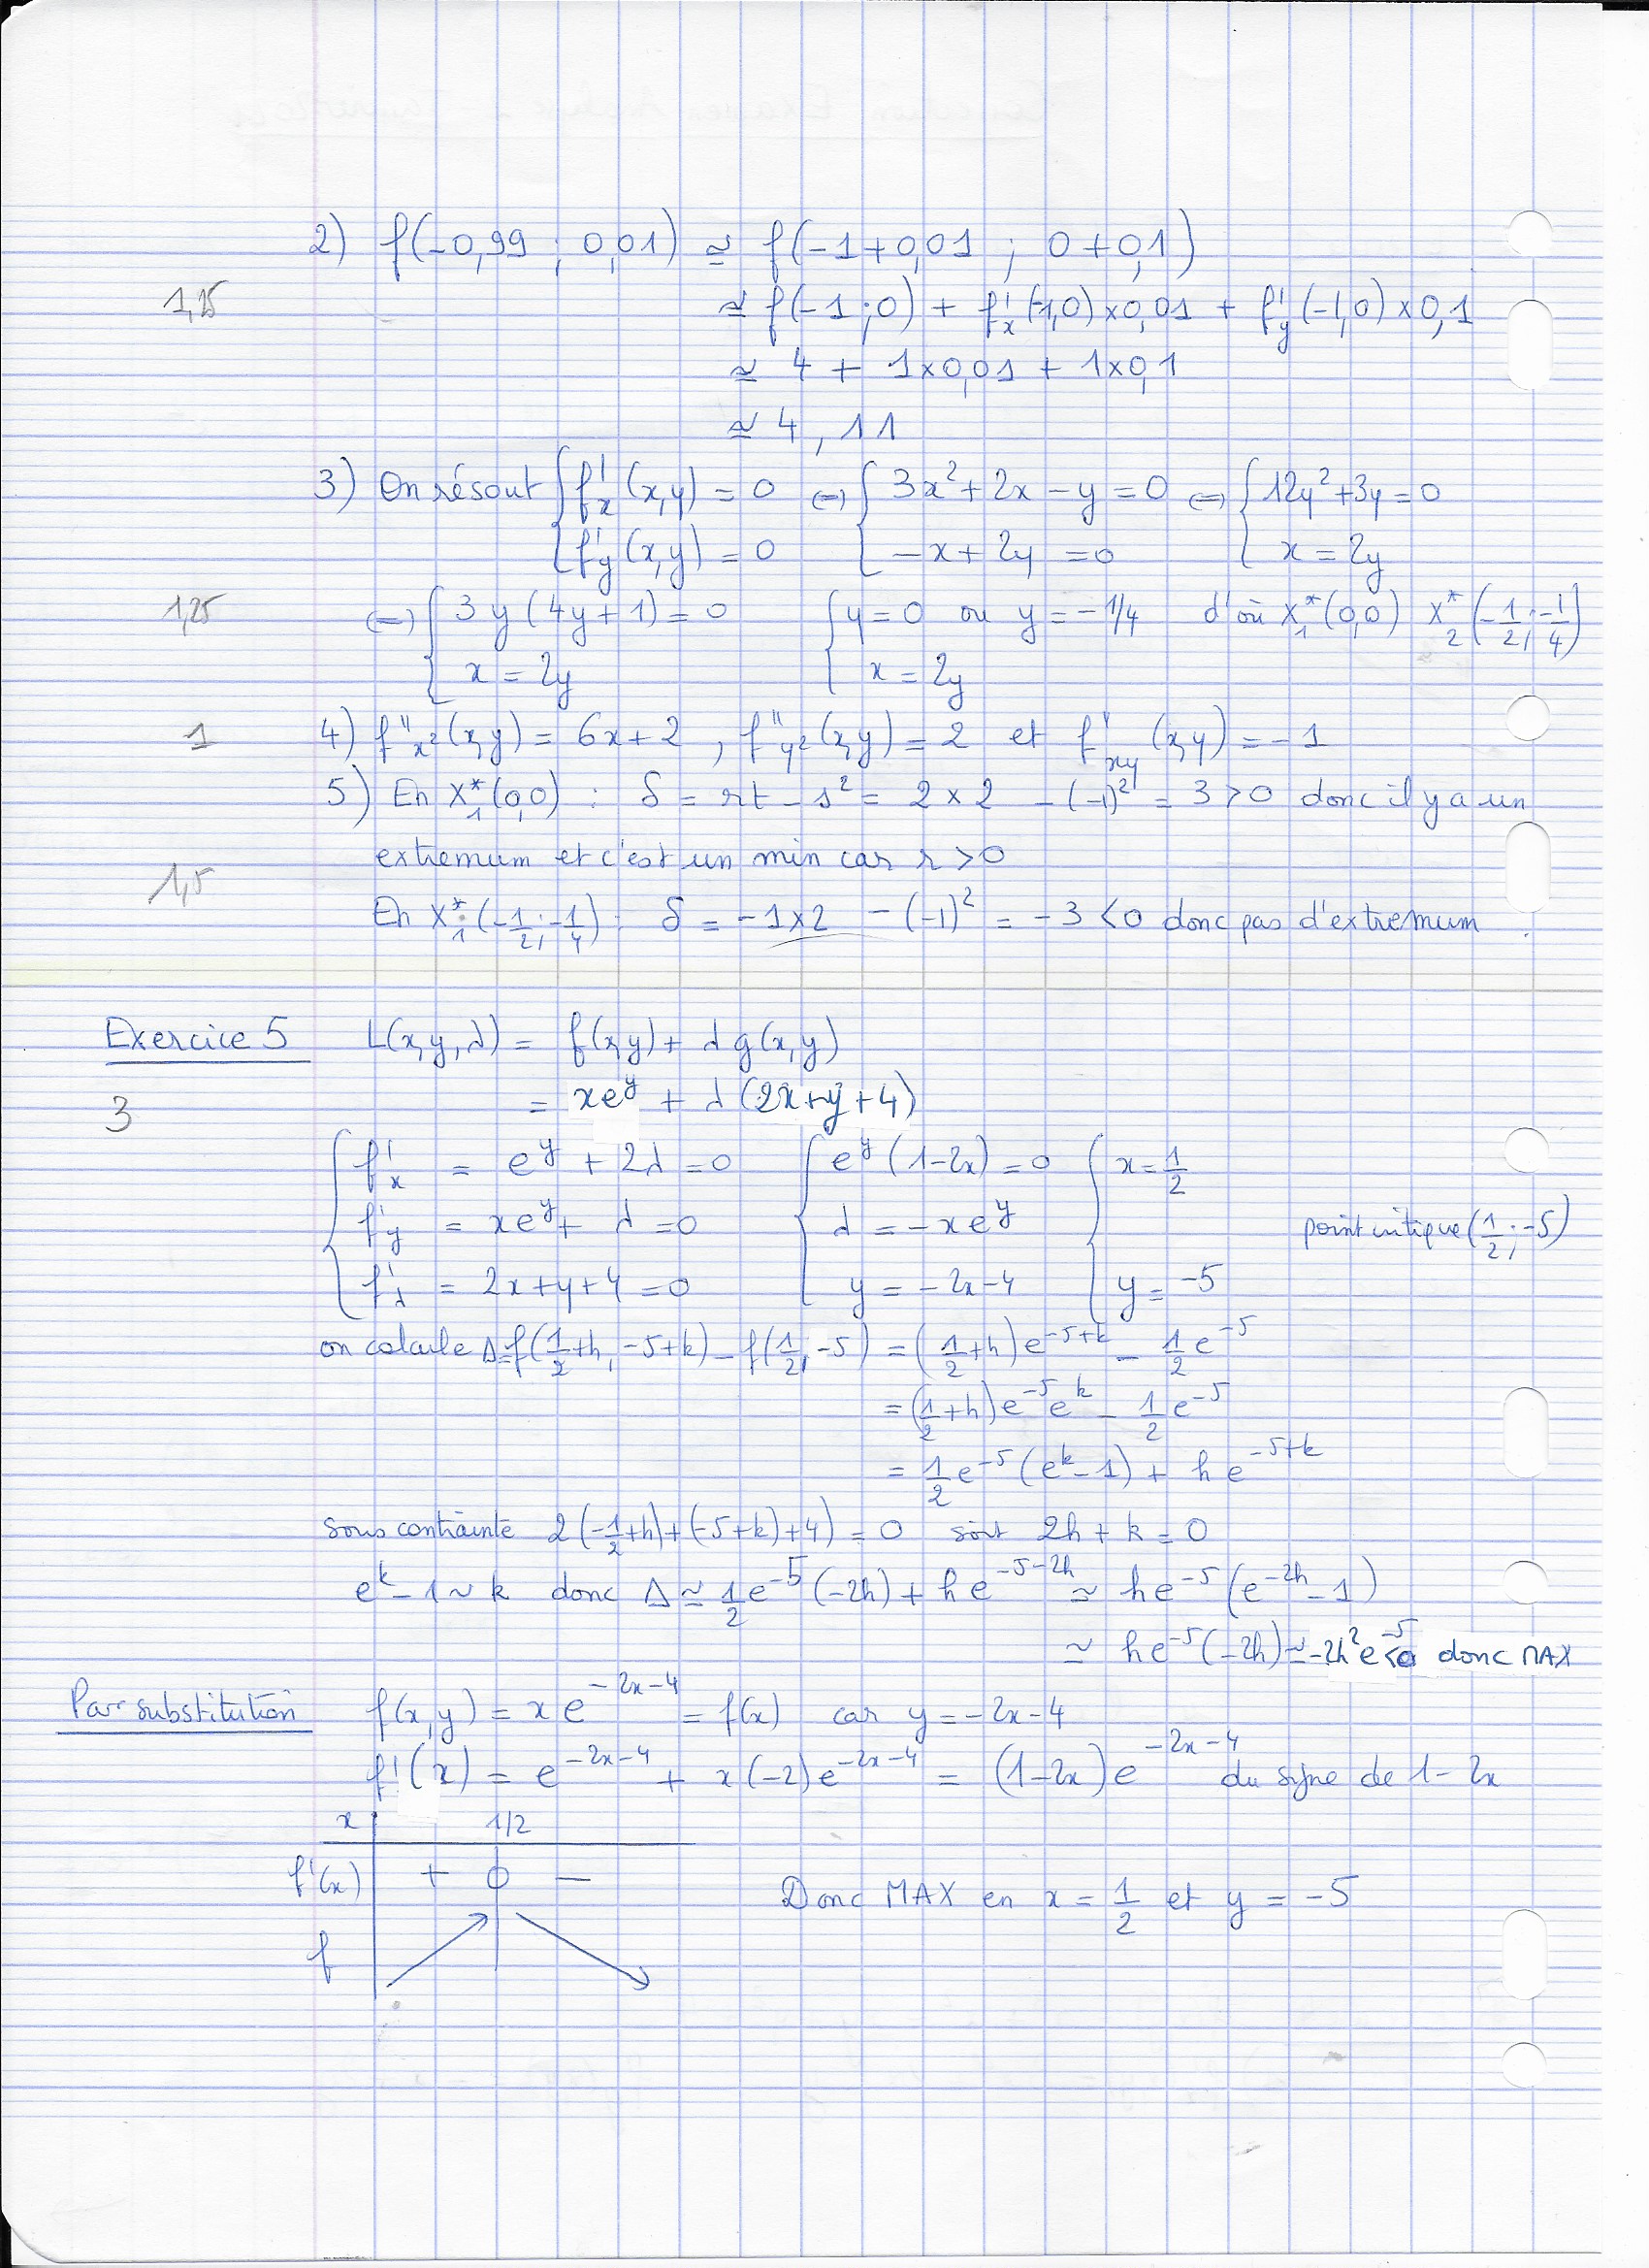 2) f(-0,99 ; 0,01) ≃ f(-1+0,01 ; 0+0,1)
1,25 ≃ f(-1;0) + f'x(-1,0)×0,01 + f'y(-1,0)×0,1
≃ 4 + 1×0,01 + 1×0,1
≃ 4,11
3) On résout { f'x(x,y) = 0 ⇔ { 3x²+2x-y=0 ⇔ { 12y²+3y=0
{ f'y(x,y) = 0 { -x+2y =0 { x=2y
1,25 ⇔ { 3y(4y+1)=0 { y=0 ou y=-1/4 d'où X*1(0,0) X*2(-1/2;-1/4)
{ x=2y { x=2y
1 4) f''x²(x,y) = 6x+2 , f''y²(x,y) = 2 et f''xy(x,y) = -1
5) En X*1(0,0) : δ = rt-s² = 2×2 -(-1)² = 3>0 donc il y a un
extremum et c'est un min car r>0
1,5
En X*1(-1/2;-1/4) : δ = -1×2 -(-1)² = -3<0 donc pas d'extremum.
Exercice 5 L(x,y,λ) = f(x,y)+ λg(x,y)
3 = xe^y + λ(2x+y+4)
{ f'x = e^y + 2λ=0 { e^y(1-2x)=0 { x=1/2
{ f'y = xe^y+ λ=0 { λ=-xe^y point critique(1/2;-5)
{ f'λ = 2x+y+4=0 { y=-2x-4 { y=-5
on calcule Δ=f(1/2+h,-5+k)-f(1/2,-5) = (1/2+h)e^-5+k - 1/2e^-5
=(1/2+h)e^-5e^k - 1/2e^-5
= 1/2e^-5(e^k-1) + he^-5+k
sous contrainte 2(-1/2+h)+(-5+k)+4)=0 soit 2h+k=0
e^k-1~k donc Δ≃1/2e^-5(-2h)+he^-5-2h ≃ he^-5(e^-2h-1)
≃ he^-5(-2h)≃-2h²e^-5<0 donc MAX
Par substitution f(x,y) = xe^-2x-4 = f(x) car y=-2x-4
f'(x) = e^-2x-4 + x(-2)e^-2x-4 = (1-2x)e^-2x-4 du signe de 1-2x
x 1/2
f'(x) + 0 -
Donc MAX en x=1/2 et y=-5
f